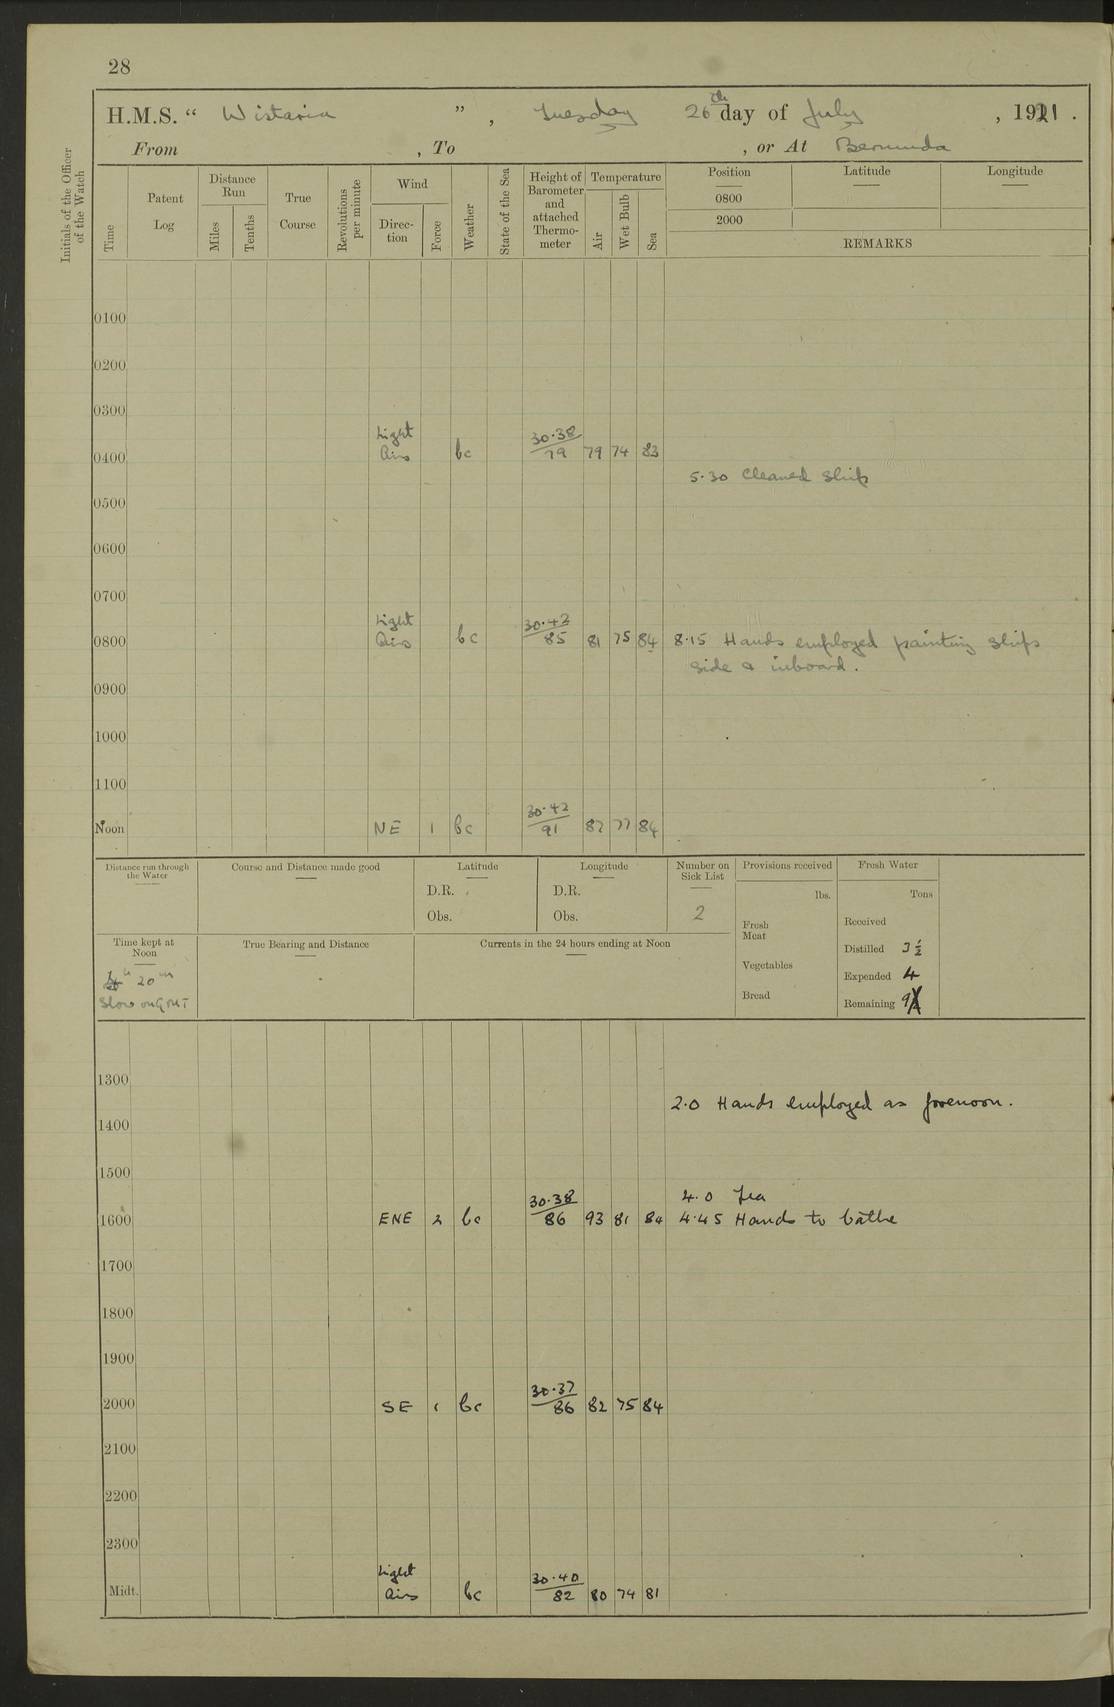 28
H.M.S. “ Wistaria ” , Tuesday 26th day of July , 1921 .
From , To , or At Bermuda
Initials of the Officer of the Watch
Time
Patent Log
Distance Run
Miles
Tenths
True Course
Revolutions per minute
Wind
Direc-tion
Force
Weather
State of the Sea
Height of Barometer and attached Thermo-meter
Temperature
Air
Wet Bulb
Sea
Position Latitude Longitude
0800
2000
REMARKS
0100
0200
0300
Light 30.38
0400 Airs bc 79 79 74 83
5.30 Cleaned Ship
0500
0600
0700
Light 30.42
0800 Airs bc 85 81 75 84 8.15 Hands employed painting ships
side & inboard.
0900
1000
1100
30.42
Noon NE 1 bc 91 87 77 84
Distance run through the Water
Course and Distance made good
Latitude
D.R.
Obs.
Longitude
D.R.
Obs.
Number on Sick List
2
Provisions received
lbs.
Fresh Meat
Vegetables
Bread
Fresh Water
Tons
Received
Distilled 3½
Expended 4
Remaining
Time kept at Noon
4h 20m
Slow on GMT
True Bearing and Distance
Currents in the 24 hours ending at Noon
1300
2.0 Hands employed as forenoon.
1400
1500
30.38 4.0 Tea
1600 ENE 2 bc 86 93 81 84 4.45 Hands to bathe
1700
1800
1900
30.37
2000 SE 1 bc 86 82 75 84
2100
2200
2300
Light 30.40
Midt. Airs bc 82 80 74 81